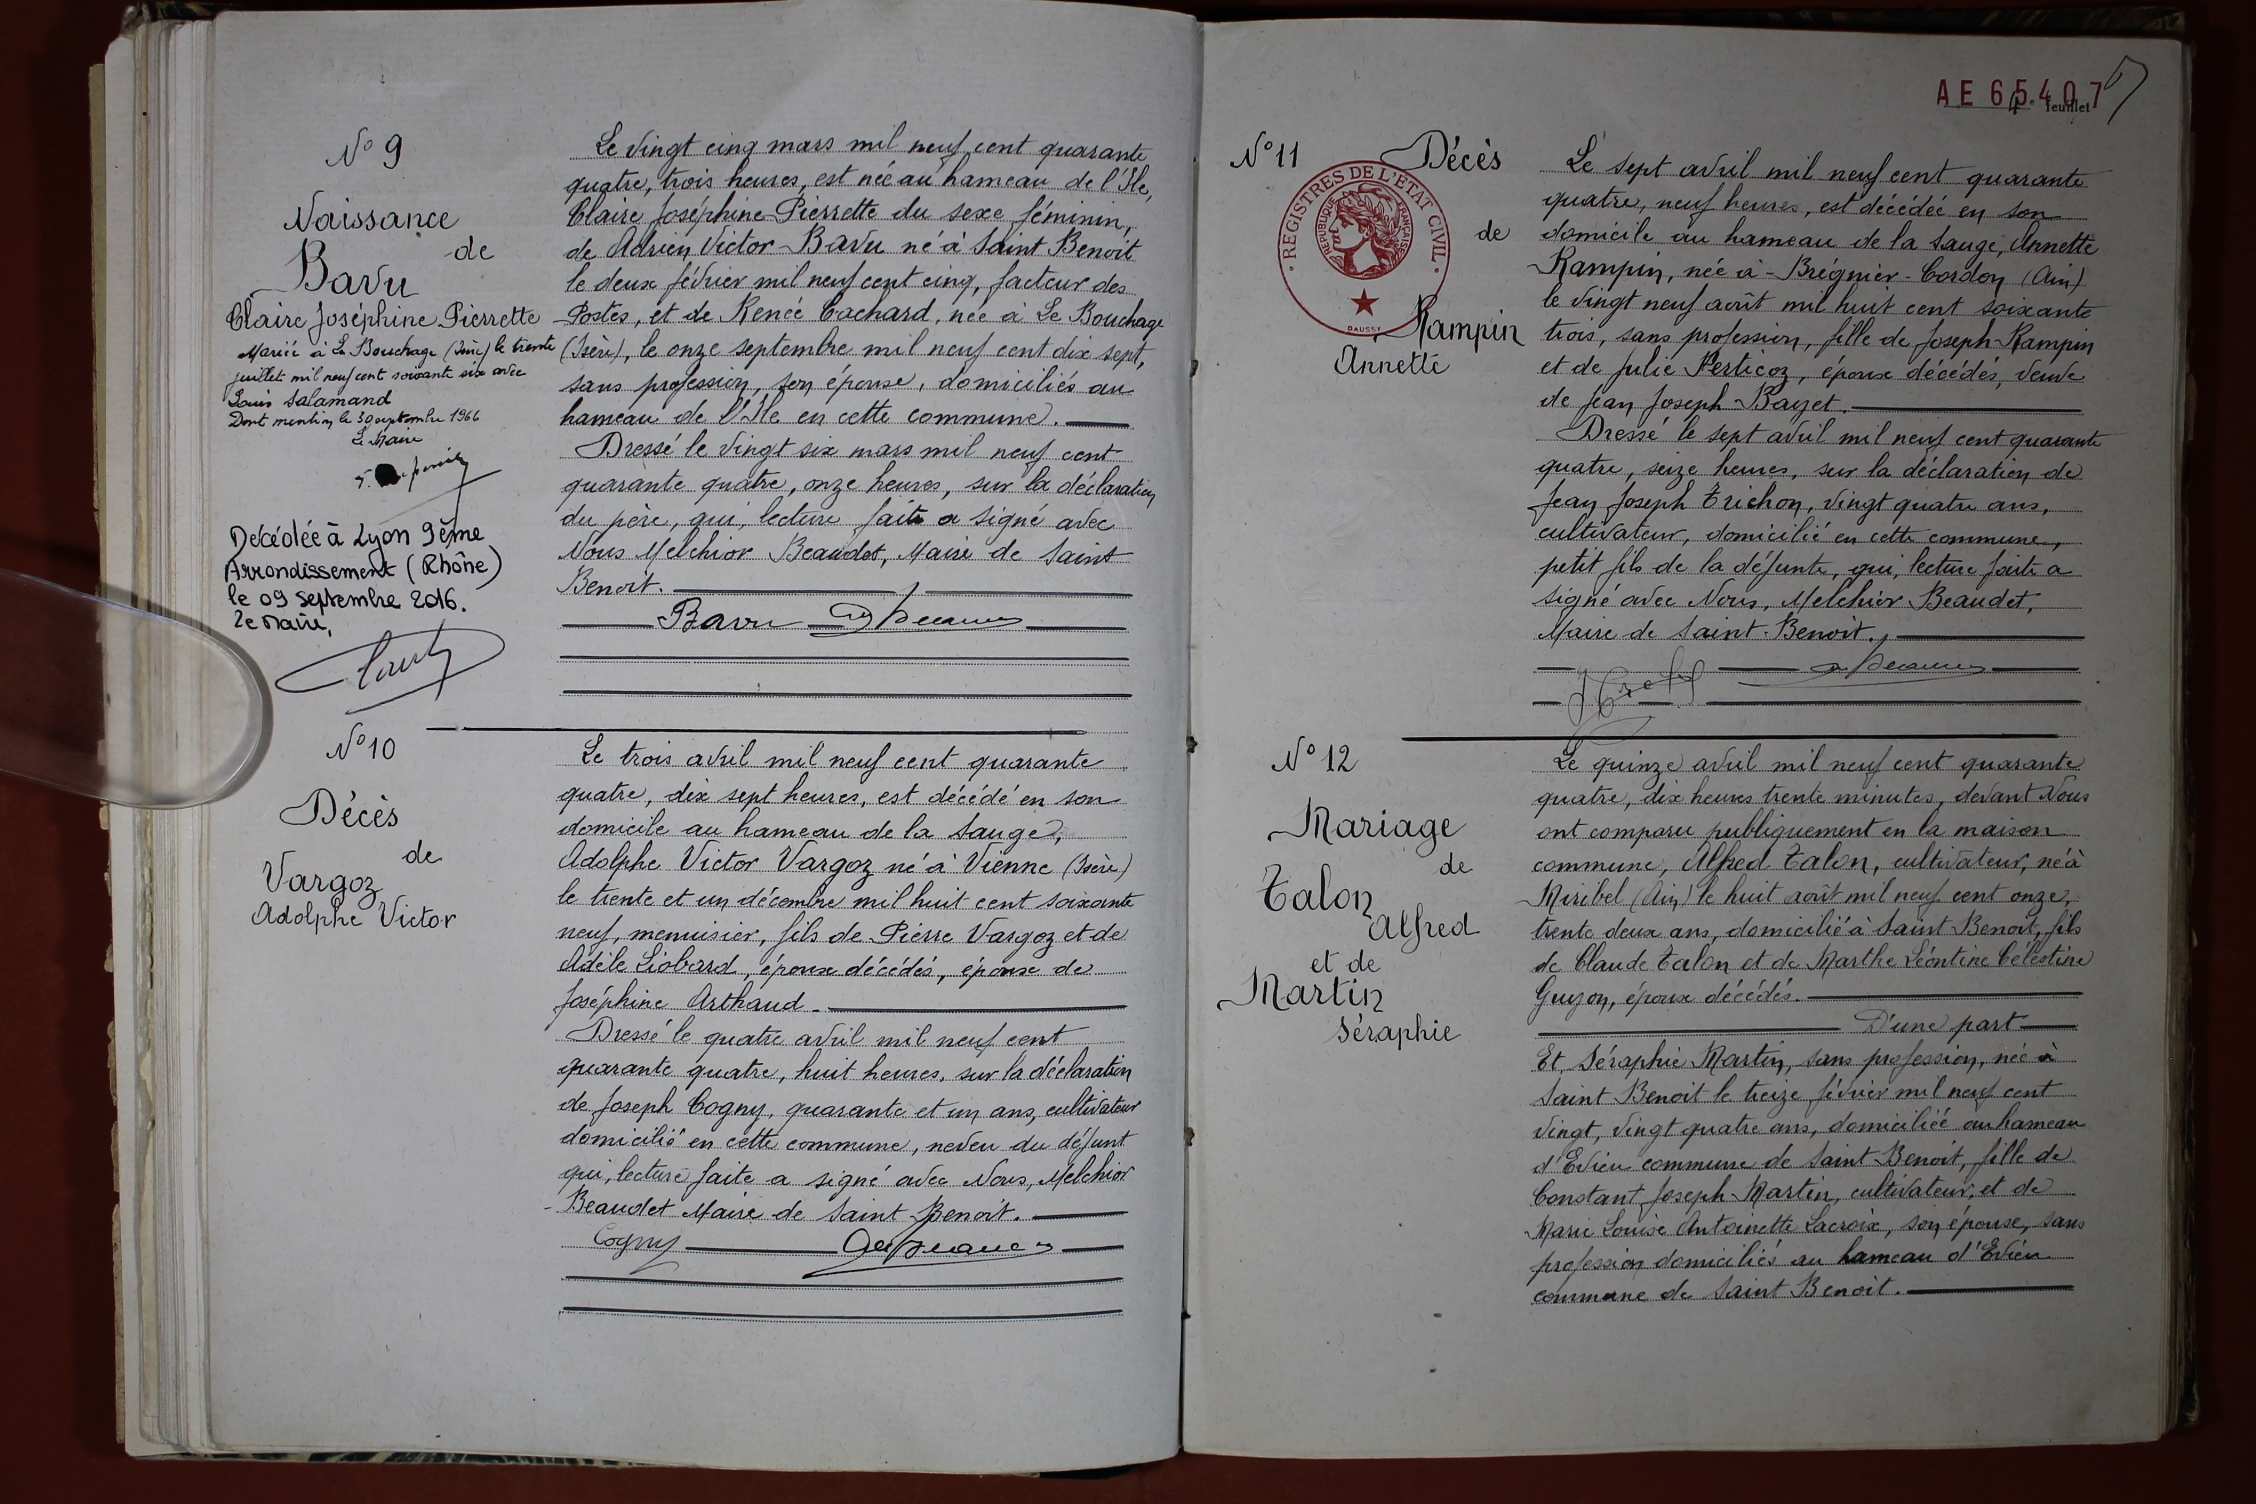 N° 9
Naissance
de
Bavu
Claire Joséphine Pierrette
Mariée à Le Bouchage (Isère) le trente
juillet mil neuf cent soixante six avec
Louis Salamand
Dont mention le 30 septembre 1966
Le Maire
Décédée à Lyon 9ème
Arrondissement (Rhône)
le 09 septembre 2016.
Le Maire,
Le vingt cinq mars mil neuf cent quarante
quatre, trois heures, est née au hameau de l'Ile,
Claire Joséphine Pierrette du sexe féminin,
de Adrien Victor Bavu né à Saint Benoit
le deux février mil neuf cent cinq, facteur des
Postes, et de Renée Cachard, née à Le Bouchage
(Isère), le onze septembre mil neuf cent dix sept,
sans profession, son épouse, domiciliés au
hameau de l'Ile en cette commune.
Dressé le vingt six mars mil neuf cent
quarante quatre, onze heures, sur la déclaration
du père, qui, lecture faite a signé avec
Nous Melchior Beaudet, Maire de Saint
Benoit.
Bavu
N° 10
Décès
de
Vargoz
Adolphe Victor
Le trois avril mil neuf cent quarante
quatre, dix sept heures, est décédé en son
domicile au hameau de la Sauge,
Adolphe Victor Vargoz né à Vienne (Isère)
le trente et un décembre mil huit cent soixante
neuf, menuisier, fils de Pierre Vargoz et de
Adèle Liobard, époux décédés, époux de
Joséphine Arthaud.
Dressé le quatre avril mil neuf cent
quarante quatre, huit heures, sur la déclaration
de Joseph Cogny, quarante et un ans, cultivateur
domicilié en cette commune, neveu du défunt
qui, lecture faite a signé avec Nous, Melchior
Beaudet Maire de Saint Benoit.
Cogny
AE 65407
4e feuillet
N° 11
Décès
de
Rampin
Annette
REGISTRES DE L'ETAT CIVIL
REPUBLIQUE FRANÇAISE
DAUSSY
Le sept avril mil neuf cent quarante
quatre, neuf heures, est décédée en son
domicile au hameau de la Sauge, Annette
Rampin, née à Brégnier-Cordon (Ain)
le vingt neuf août mil huit cent soixante
trois, sans profession, fille de Joseph Rampin
et de Julie Perticoz, époux décédés, veuve
de Jean Joseph Bayet.
Dressé le sept avril mil neuf cent quarante
quatre, seize heures, sur la déclaration de
Jean Joseph Trichon, vingt quatre ans,
cultivateur, domicilié en cette commune,
petit fils de la défunte, qui, lecture faite a
signé avec Nous, Melchior Beaudet,
Maire de Saint-Benoit.
N° 12
Mariage
de
Talon
Alfred
et de
Martin
Séraphie
Le quinze avril mil neuf cent quarante
quatre, dix heures trente minutes, devant Nous
ont comparu publiquement en la maison
commune, Alfred Talon, cultivateur, né à
Miribel (Ain) le huit août mil neuf cent onze,
trente deux ans, domicilié à Saint Benoit, fils
de Claude Talon et de Marthe Léontine Célestine
Guyon, époux décédés.
D'une part
Et Séraphie Martin, sans profession, née à
Saint Benoit le treize février mil neuf cent
vingt, vingt quatre ans, domiciliée au hameau
d'Evieu commune de Saint Benoit, fille de
Constant Joseph Martin, cultivateur, et de
Marie Louise Antoinette Lacroix, son épouse, sans
profession domiciliés au hameau d'Evieu
commune de Saint Benoit.